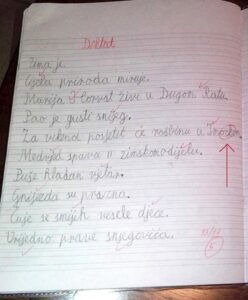 Diktat
Zima je.
Cijela priroda miruje.
Marija Horvat živi u Dugom Ratu.
Pao je gusti snijeg.
Za vikend posjetit će rodbinu u
Medvjed spava u zimskom
Puše hladan vjetar.
Gnijezda su prazna.
Čuje se smijeh vesele djece.
Vrijedno prave snjegovića.
5